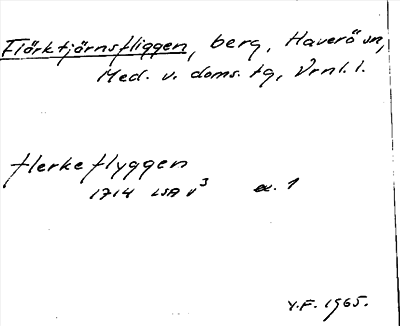 Flärktjärnsfliggen, berg, Haverö sn,
Med. v. doms. tg, Vrnl. l.
flerkeflyggen
1714 LSA V³ ex. 1
Y.F. 1965.